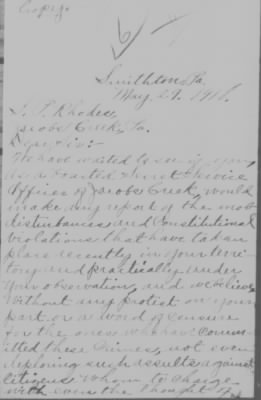 Copy
Smithton, Pa.
May, 29, 1918.
S. P. Rhodes,
Jacobs Creek, Pa.
Dear Sir:-
We have waited to see if you,
as a trusted Secret Service
Officer of Jacobs Creek, would
make any report of the mob
disturbances and Constitutional
violations that have taken
place recently in your terri-
tory and practically under
your observation, and we believe
without any protest on your
part or a word of censure
for the ones who have comm-
itted these crimes, not even
deploring such assaults against
citizens whom to charge
with even the thought of